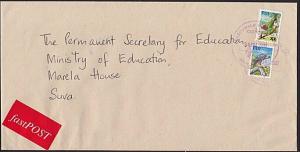 The Permanent Secretary for Education
Ministry of Education,
Marela House
Suva.
fastPOST
FIJI
FIJI